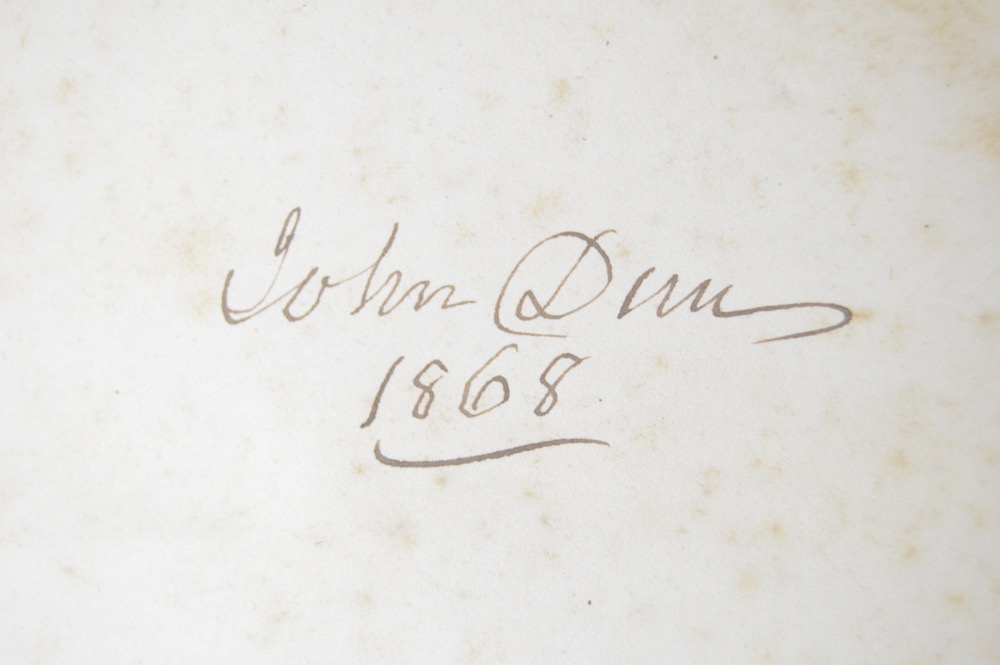 John Dunn
1868